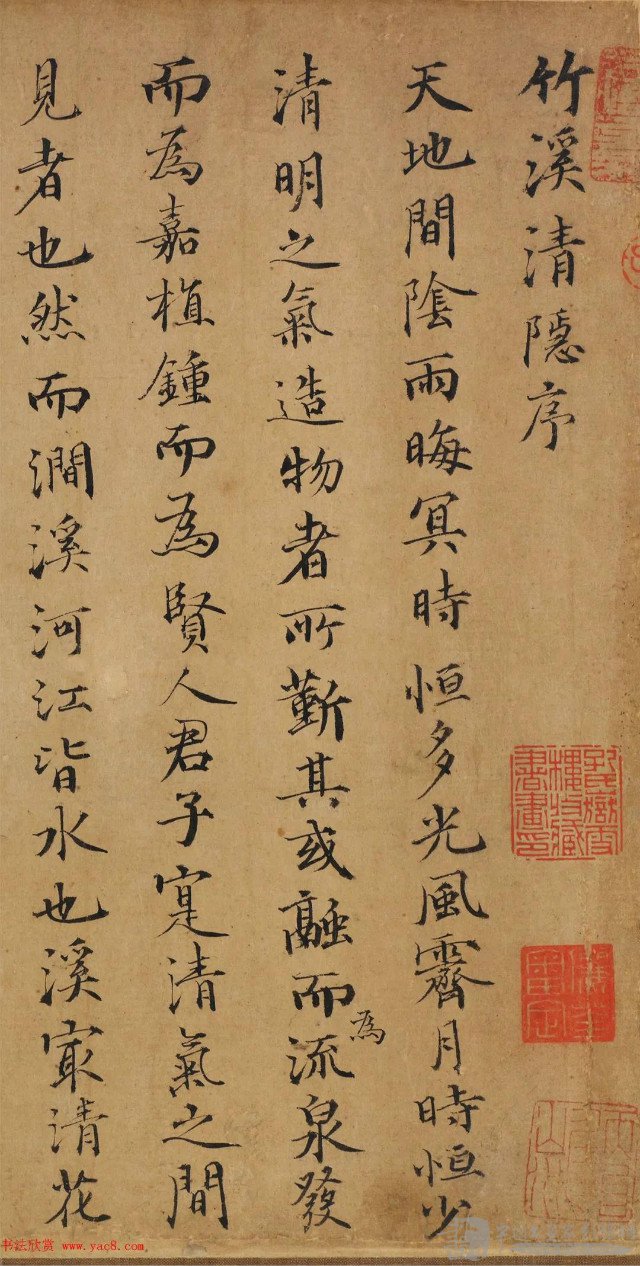 竹溪清隱序
天地間陰雨晦冥時恒多光風霽月時恒少
清明之氣造物者所蘄其或融而為流泉發
而為嘉植鍾而為賢人君子寔清氣之間
見者也然而澗溪河江皆水也溪寂清花
书法欣赏 www.yac8.com